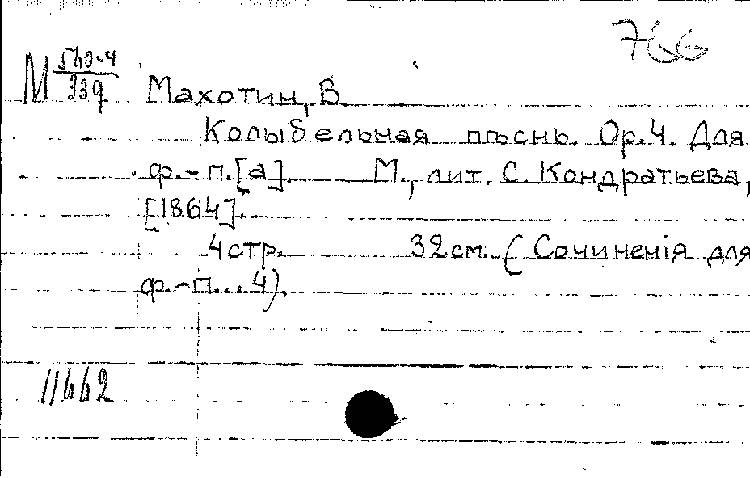 М 563-4/339 Махотин, В.
Колыбельная пѣснь. Ор.4. Для
ф.-п.[а]. М., лит. С. Кондратьева,
[1864].
4 стр. 32 см. (Сочиненія для
ф.-п... 4).
11662